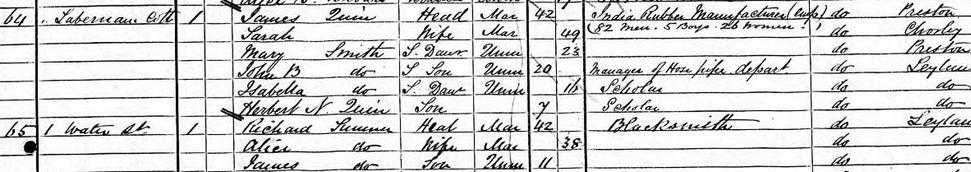 64 " Labernam Cott 1 James Quin Head Mar 42 India Rubber Manufacturer (emp) do Preston
Sarah Wife Mar 49 (82 Men. 5 Boys. 26 Women.) do Chorley
Mary Smith S. Daur Unm 23 do Preston
John B do S Son Unm 20 Manager of Hose pipe depart. do Leylan
Isabella do S. Daur Unm 16 Scholar do do
Herbert N Quin Son 7 Scholar do do
65 1 Water St 1 Richard Sumner Head Mar 42 Blacksmith do Leylan
Alice do Wife Mar 38 do do
James do Son Unm 11 do do